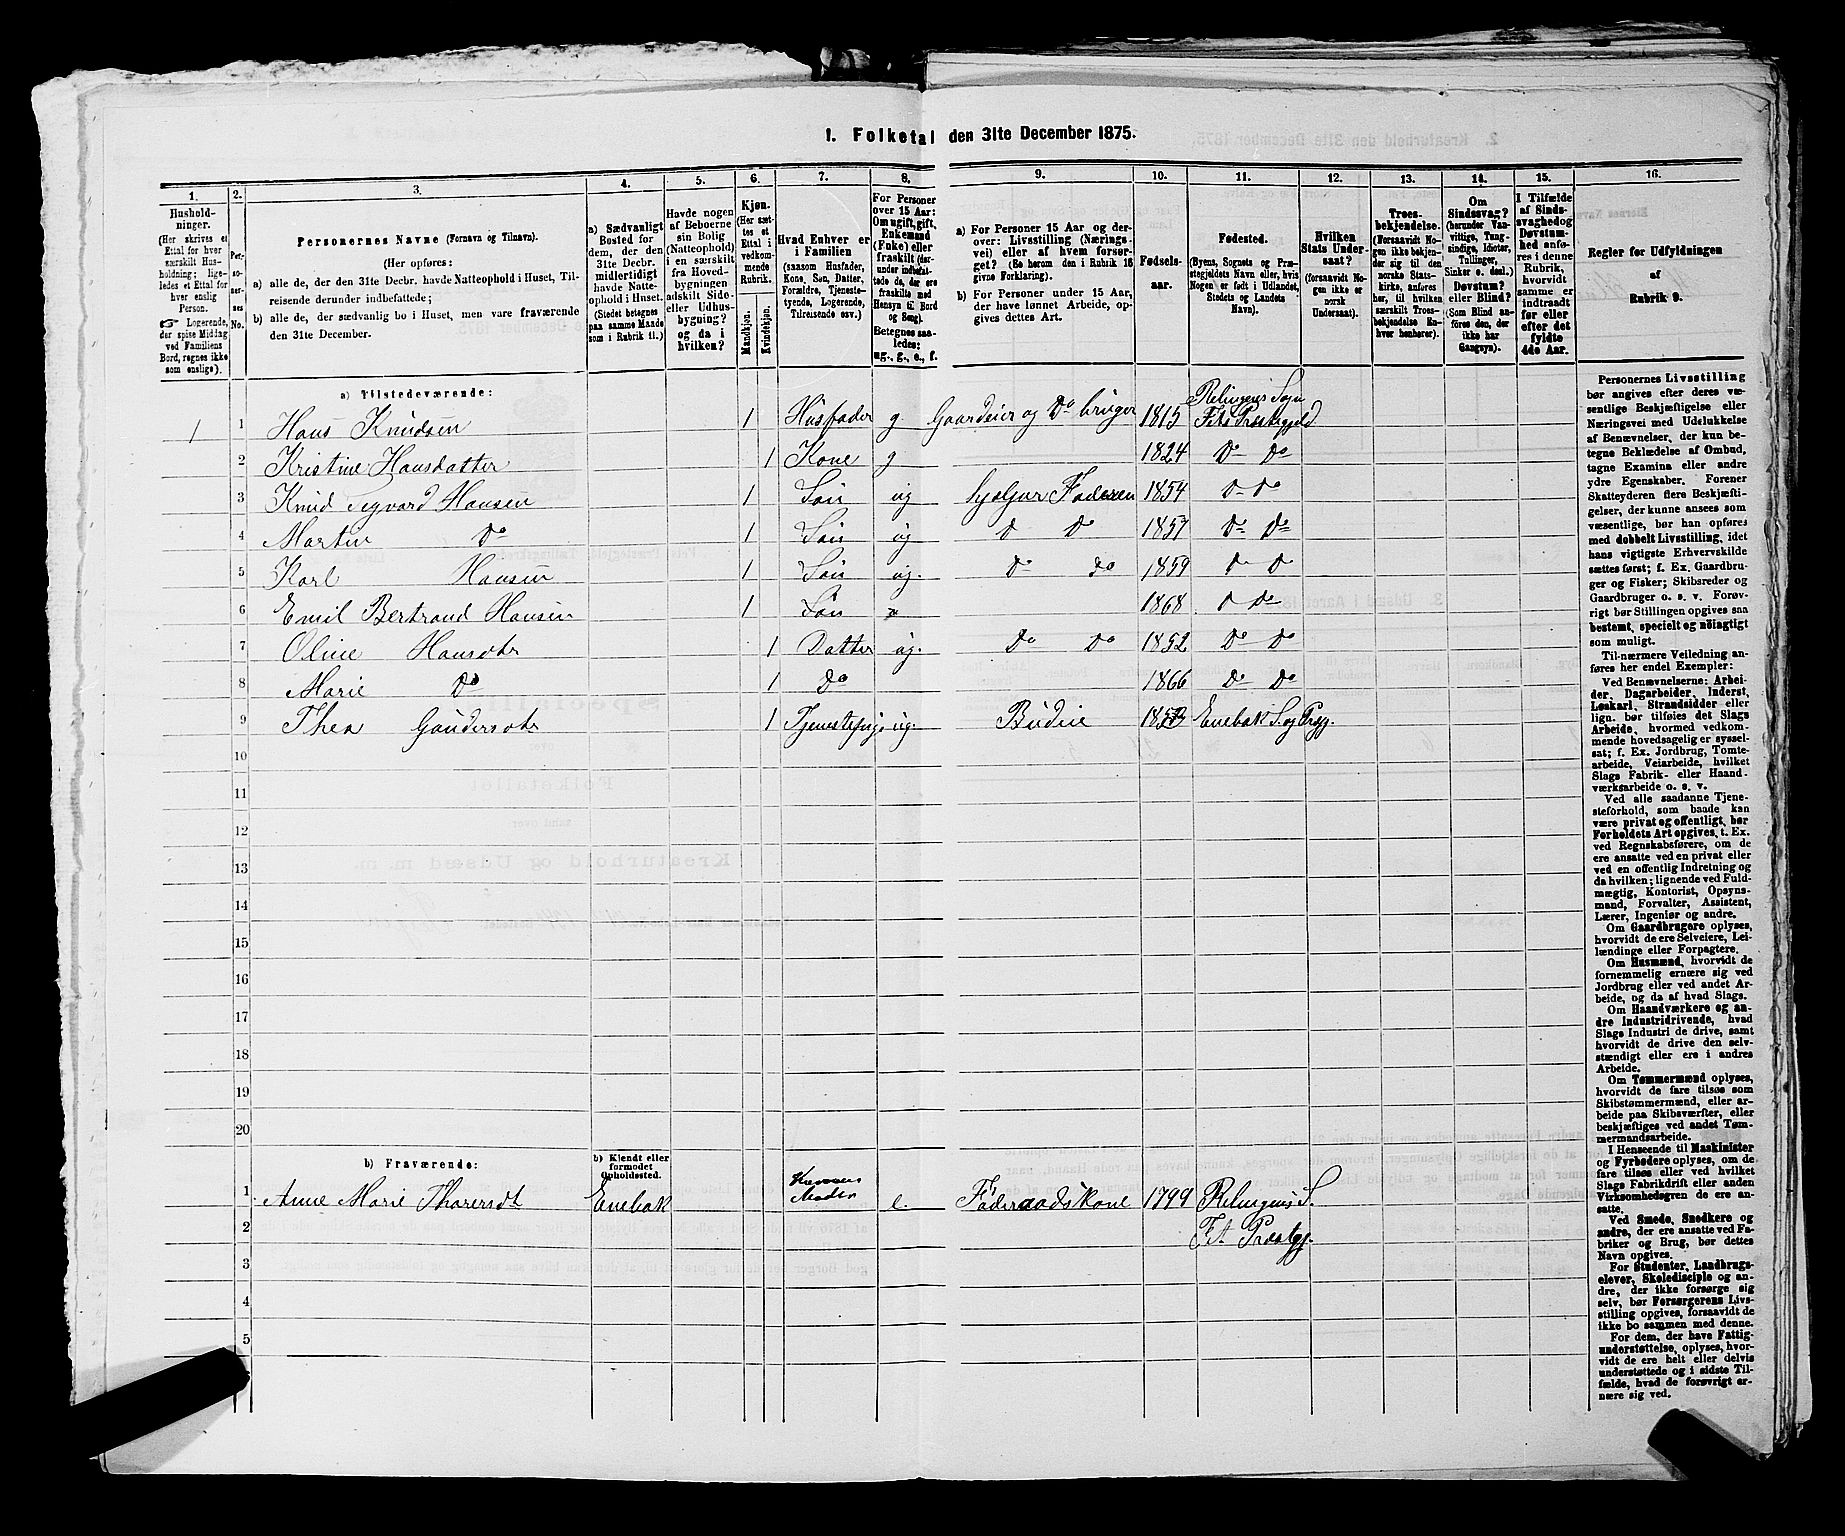 1. Folketal den 31te December 1875.
1.
2.
3.
4.
5.
6.
7.
8.
9.
10.
11.
12.
13.
14.
15.
16.
Husholdninger.
(Her skrives et
Ettal for hver
særskilt Husholdning; ligeledes et Ettal for
hver enslig
Person.
Logerende,
der spise Middag
ved Familiens
Bord, regnes ikke
som enslige).
Personernes No.
Personernes Navne (Fornavn og Tilnavn).
(Her opføres:
a) alle de, der den 31te Decbr. havde Natteophold i Huset, Tilreisende derunder indbefattede;
b) alle de, der sædvanlig bo i Huset, men vare fraværende
den 31te December.
a) Sædvanligt
Bosted for
dem, der den
31te Decbr.
midlertidigt
havde Natteophold i Huset.
(Stedet betegnes
paa samme Maade
som i Rubrik 11.)
Havde nogen
af Beboerne
sin Bolig
(Natteophold)
i en særskilt
fra Hovedbygningen
adskilt Side- eller Udhusbygning? og da i
hvilken?
Kjøn.
(Her sættes et
Ettal i
vedkommende
Rubrik.)
Mandkjøn.
Kvindekjøn.
Hvad Enhver er
i Familien
(saasom Husfader,
Kone, Søn, Datter,
Forældre, Tjenestetyende, Logerende,
Tilreisende osv.)
For Personer
over 15 Aar:
Om ugift, gift,
Enkemand
(Enke) eller
fraskilt (derunder indbefattede de, der ere
fraskilte med
Hensyn til Bord
og Seng).
Betegnes saaledes:
ug., g., e., f.
a) For Personer 15 Aar og derover: Livsstilling (Næringsvei) eller af hvem forsørget? (Se herom den i Rubrik 16
givne Forklaring).
b) For Personer under 15 Aar,
der have lønnet Arbeide, opgives dettes Art.
Fødselsaar.
Fødested.
(Byens, Sognets og Præstegjeldets Navn eller, hvis
Nogen er født i Udlandet,
Stedets og Landets
Navn).
Hvilken
Stats Undersaat?
(forsaavidt Nogen ikke er
norsk
Undersaat).
Troesbekjendelse.
(Forsaavidt Nogen ikke bekjender sig til den
norske Statskirke, anføres
her, til hvilken
særskilt Troesbekjendelse Enhver henhører).
Om
Sindssvag?
(herunder Vanvittige, Tungsindige, Idioter,
Tullinger,
Sinker o. desl.)
Døvstum?
eller Blind?
(Som Blind anføres den, der
ikke har
Gangsyn).
I Tilfælde
af Sindssvaghed og
Døvstumhed anføres i denne
Rubrik,
hvorvidt
samme er
indtraadt
før eller
efter det
fyldte
4de Aar.
Regler for Udfyldningen
af
Rubrik 9.
a) Tilstedeværende:
1 1 Hans Knudsen 1 Husfader g Gaardeier og Do bruger 1815 Relingens Sogn Fets Præstegjeld
2 Kristine Hansdatter 1 Kone g 1824 Do Do
3 Knud Sigvard Hansen 1 Søn ug hjelper Faderen 1854 Do Do
4 Martin Do 1 Søn ug D Do 1857 Do Do
5 Karl Hansen 1 Søn ug. Do Do 1859 Do D
6 Emil Bertrand Hansen 1 Søn 1868 D Do
7 Oline Hansdtr 1 Datter ug. Do Do 1852 Do Do
8 Marie Do 1 Do 1866 Do Do
9 Thea Gundersdtr 1 Tjenestepige ug. Budeie 1853 Enebak S. og Præg.
10
11
12
13
14
15
16
17
18
19
20
b) Fraværende:
b) Kjendt eller
formodet
Opholdssted.
1 Anne Marie Thoresdt Enebak Konens Moder e. Føderaadskone 1799 Relingens S.
2 Fet Præstgj.
3
4
5
Personernes Livsstilling
bør angives efter deres væsentlige Beskjæftigelse eller
Næringsvei med Udelukkelse
af Benævnelser, der kun betegne Beklædelse af Ombud,
tagne Examina eller andre
ydre Egenskaber. Forener
Skatteyderen flere Beskjæftigelser, der kunne ansees som
væsentlige, bør han opføres
med dobbelt Livsstilling, idet
hans vigtigste Erhvervskilde
sættes først; f. Ex. Gaardbruger og Fisker; Skibsreder og
Gaardbruger o. s. v. Forøvrigt bør Stillingen opgives saa
bestemt, specielt og nøiagtigt
som muligt.
Til nærmere Veiledning anføres her endel Exempler:
Ved Benævnelserne: Arbeider, Dagarbeider, Inderst,
Løskarl, Strandsidder eller
lign. bør tilføies det Slags
Arbeide, hvormed vedkommende hovedsagelig er sysselsat; f. Ex. Jordbrug, Tomtearbeide, Veiarbeide, hvilket
Slags Fabrik- eller Haandværksarbeide o. s. v.
Ved alle saadanne Tjenesteforhold, som baade kan
være privat og offentligt, bør
Forholdets Art opgives, t. Ex.
ved Regnskabsførere, om de
ere ansatte ved en privat eller
ved en offentlig Indretning og
da hvilken; lignende ved Fuldmægtig, Kontorist, Opsynsmand, Forvalter, Assistent,
Lærer, Ingeniør og andre.
Om Gaardbrugere oplyses,
hvorvidt de ere Selveiere, Leilændinge eller Forpagtere.
Om Husmænd, hvorvidt de
fornemmelig ernære sig ved
Jordbrug eller ved andet Arbeide, og da af hvad Slags.
Om Haandværkere og andre Industridrivende, hvad
Slags Industri de drive, samt
hvorvidt de drive den selvstændigt eller ere i andres
Arbeide.
Om Tømmermænd oplyses,
hvorvidt de fare tilsøs som
Skibstømmermænd, eller arbeide paa Skibsværfter, eller
beskjæftiges ved andet Tømmermandsarbeide.
I Henseende til Maskinister
og Fyrbødere oplyses, om de
fare tilsøs eller ved hvilket
Slags Fabrikdrift eller anden
Virksomhedsgren de ere ansatte.
Ved Smede, Snedkere og
andre, der ere ansatte ved Fabriker og Brug, bør dettes
Navn opgives.
For Studenter, Landbrugselever, Skoledisciple og andre, der ikke forsørge sig
selv, bør Forsørgerens Livsstilling opgives, forsaavidt de
ikke bo sammen med denne.
For dem, der have Fattigunderstøttelse, oplyses, hvorvidt de ere helt eller delvis
understøttede og i sidste Tilfælde, hvad de forøvrigt ernære sig ved.